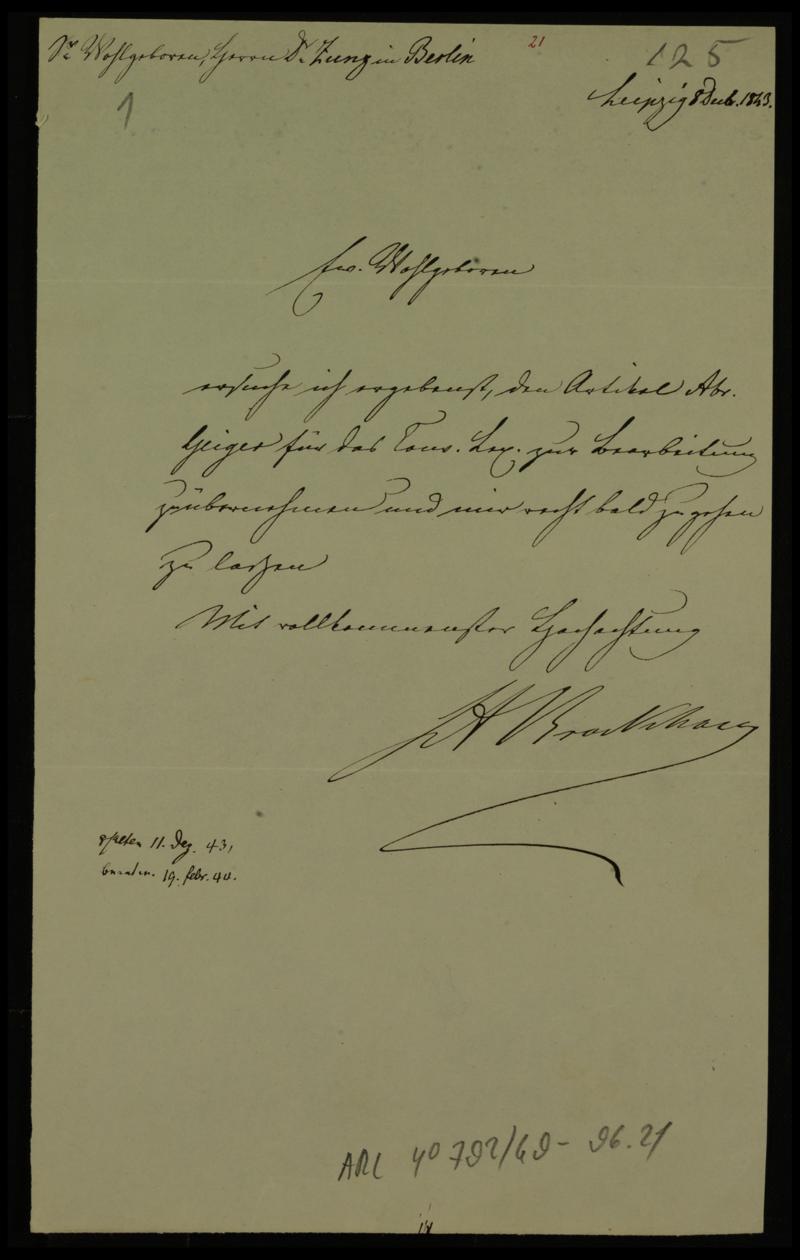 Sr Wohlgeboren, Herrn Dr. Zunz in Berlin
21
125
1
Leipzig 8 Decbr. 1843.
Ew. Wohlgeboren
ersuche ich ergebenst, den Artikel Abr.
Geiger für das Conv. Lex. zur Bearbeitung
zu übernehmen und mir recht bald zugehen
zu lassen
Mit vollkommenster Hochachtung
Brockhaus
erhalten 11. Dez. 43,
19. febr. 44.
ARC 4º 792/